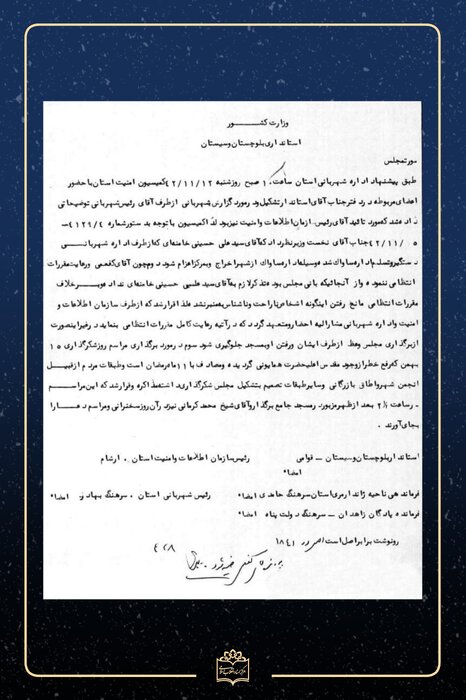 وزارت کشـــــــور
استانداری بلوچستان وسیستان
صورتمجلس
طبق پیشنهاد اداره شهربانی استان ساعت ۱۰ صبح روزشنبه ۴۲/۱۱/۱۲ کمیسیون امنیت استان با حضور
اعضای مربوطه در دفتر جناب آقای استاندار تشکیل و در مورد گزارش شهربانی از طرف آقای رئیس شهربانی توضیحاتی
داده شد که مورد تائید آقای رئیس سازمان اطلاعات وامنیت نیز بود لذا کمیسیون با توجه بدستور شماره ۴۱۲۹/۴-
۴۲/۱۱/۰۵ جناب آقای نخست وزیر نظر داد که آقای سید علی حسینی خامنه‌ای که از طرف اداره شهربانـــی
دستگیر و تسلیم اداره ساواک شد و سیله اداره ساواک از شهر اخراج و بمرکز اعزام شود و چون آقای کفعمی و رعایت مقررات
انتظامی ننموده و از آنجائیکه بانی مجلس بوده تذکر لازم به آقای سید علی حسینی خامنه‌ای نداده و بر خلاف
مقررات انتظامی مانع رفتن اینگونه اشخاص ناراحت و ناشناس به منبر نشده لذا قرار شد که از طرف سازمان اطلاعات و
امنیت و اداره شهربانی مشارالیه احضار و متعهد گردد که در آتیه رعایت کامل مقررات انتظامی بنماید در غیر اینصورت
از برگذاری مجلس وعظ از طرف ایشان و رفتن او بمسجد جلوگیری شود. سوم در مورد برگذاری مراسم روز شکرگذاری ۱۵
بهمن که رفع خطر از وجود مقدس اعلیحضرت همایونی گردیده و مصادف با ۱۱ ماه رمضان است و طبقات مردم از قبیل
انجمن شهر و اطاق بازرگانی و سایر طبقات تصمیم بتشکیل مجلس شکرگذاری دارند استعفا مذاکره و قرار شد که این مراسم
در ساعت ۲½ بعد از ظهر مزبور در مسجد جامع برگذار و آقای شیخ محمد کرمانی نیز در آن روز سخنرانی و مراسم دعا را
بجای آورند.
استاندار بلوچستان وسیستان – قوامی رئیس سازمان اطلاعات وامنیت استان . ارشام
امضاء
فرماندهی ناحیه ژاندارمری استان سرهنگ حامدی امضاء رئیس شهربانی استان . سرهنگ بهادر امضاء
فرمانده پادگان زاهدان – سرهنگ دولت پناه امضاء
رونوشت برابر اصل است ۱۸۴۱
۴۲۸